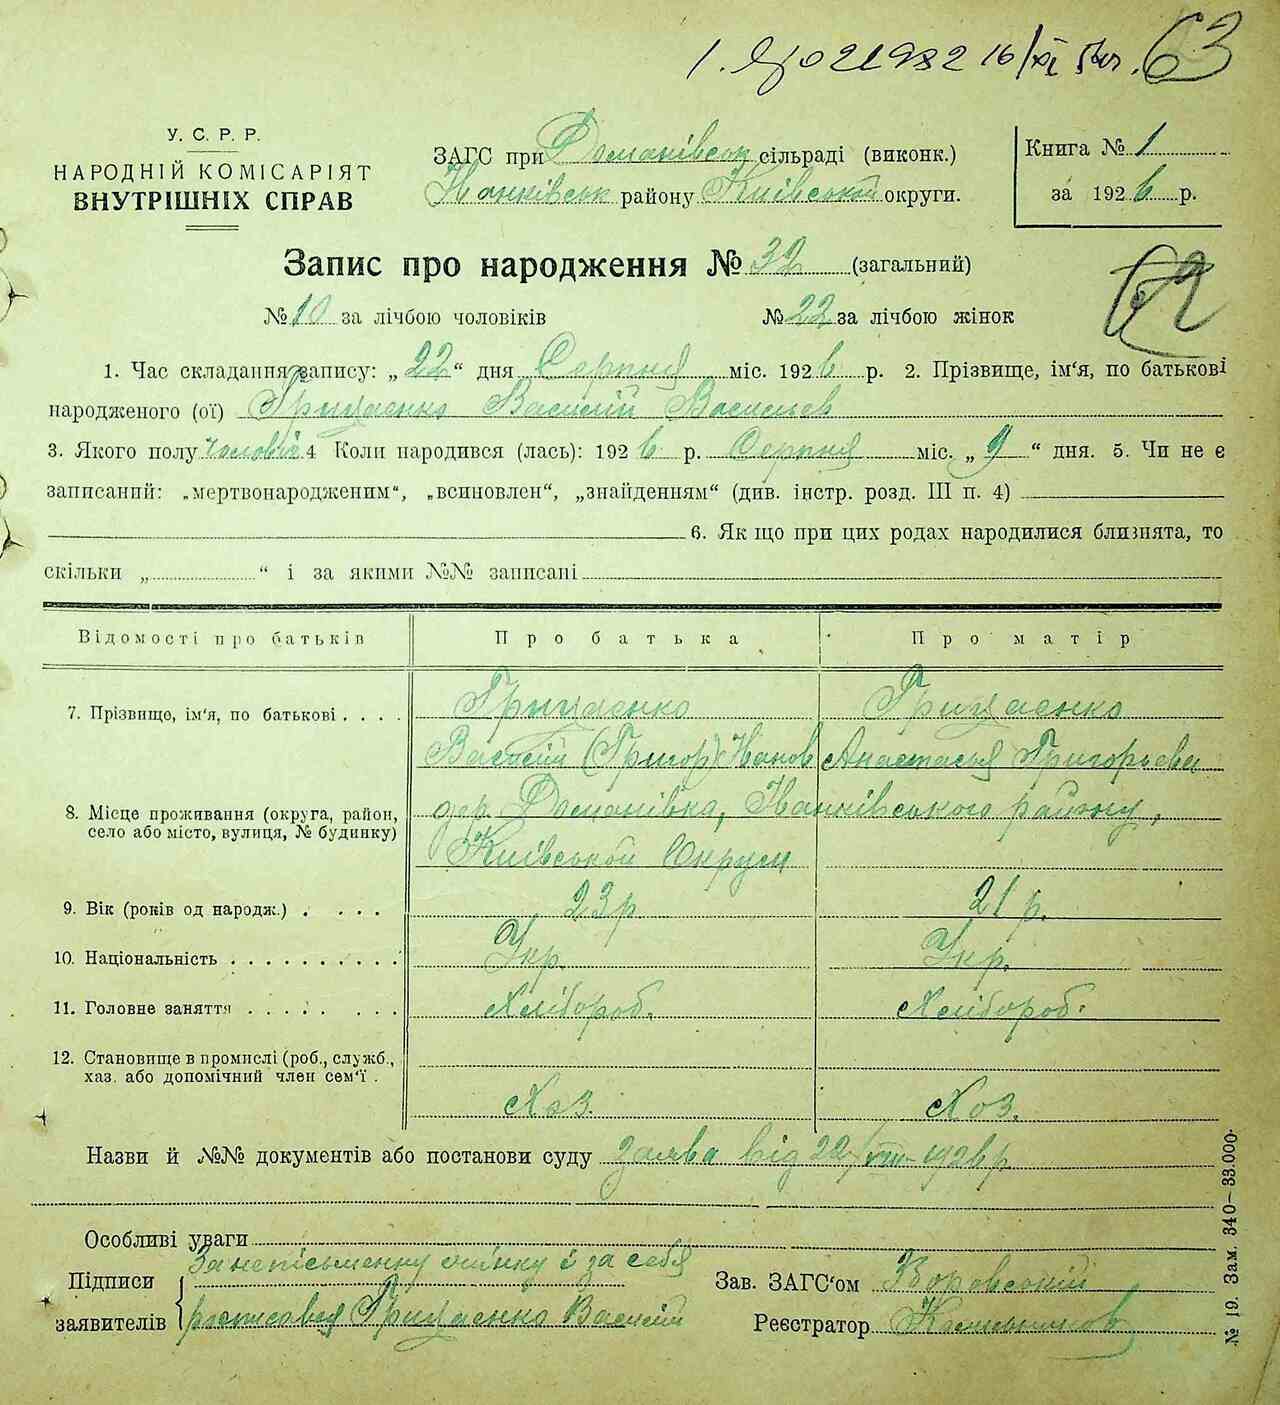 021982 16/XI 63
У. С. Р. Р.
НАРОДНІЙ КОМІСАРІЯТ
ВНУТРІШНІХ СПРАВ
ЗАГС при Доманівськ сільраді (виконк.)
Іванківськ району Київської округи.
Книга № 1
за 1926 р.
Запис про народження № 32 (загальний)
62
№ 10 за лічбою чоловіків № 22 за лічбою жінок
1. Час складання запису: „22“ дня Серпня міс. 1926 р. 2. Прізвище, ім'я, по батькові
народженого (ої) Грицаенко Василій Васильев
3. Якого полу чоловіч. 4 Коли народився (лась): 1926 р. Серпня міс. „9“ дня. 5. Чи не є
записаний: „мертвонародженим“, „всиновлен“, „знайденням“ (див. інстр. розд. III п. 4)
6. Як що при цих родах народилися близнята, то
скільки „ “ і за якими №№ записані
Відомості про батьків Про батька Про матір
7. Прізвище, ім'я, по батькові . . . . Грицаенко Грицаенко
Василій (Григор) Іванов Анастасья Григорьева
8. Місце проживання (округа, район,
село або місто, вулиця, № будинку)
дер. Доманівка, Іванківського району,
Київської Округи
9. Вік (років од народж.) . . . . 23 р 21 р.
10. Національність . . . . . . . . . . Укр. Укр.
11. Головне заняття . . . . . . . . Хлібороб. Хлібороб.
12. Становище в промислі (роб., служб.,
хаз. або допомічний член сем'ї .
Хоз. Хоз.
Назви й №№ документів або постанови суду заява від 22/VIII-1926 р
Особливі уваги
Підписи
заявителів
За непісьменну жінку і за себя
росписався Грицаенко Василій
Зав. ЗАГС'ом
Реєстратор
№ 19. Зам. 340–33.000.